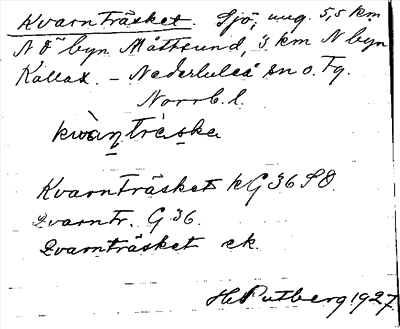 Kvarnträsket. Sjö, ung. 5,5 km
NÖ byn Måttsund, 3 km N byn
Kallax. - Nederluleå sn o. Tg.
Norrb. l.
kwàṇtrὲska
Kvarnträsket kG 36 SO.
Qvarntr. G 36.
Qvarnträsket ek.
H Rutberg 1927.